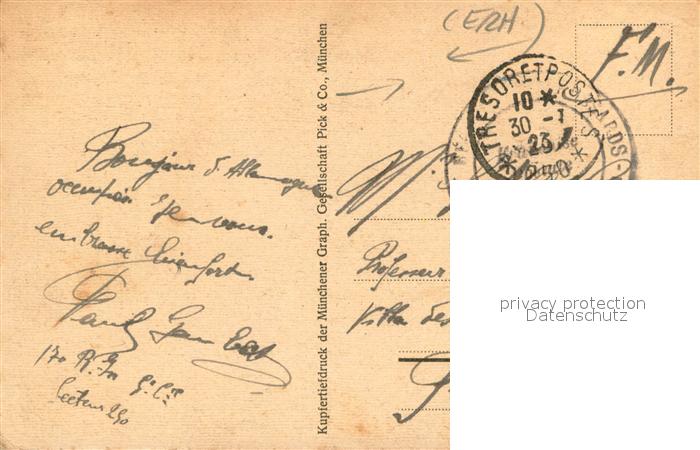 (ERH)
F.M.
TRESOR ET POSTES
10 *
30 -1
23
* 230 *
Bonjour d'Allemagne
occupée. Je vous
embrasse bien fort.
Paul
170 R.I.
Secteur 230
Kupfertiefdruck der Münchener Graph. Gesellschaft Pick & Co., München
Professeur
Villa des
privacy protection
Datenschutz